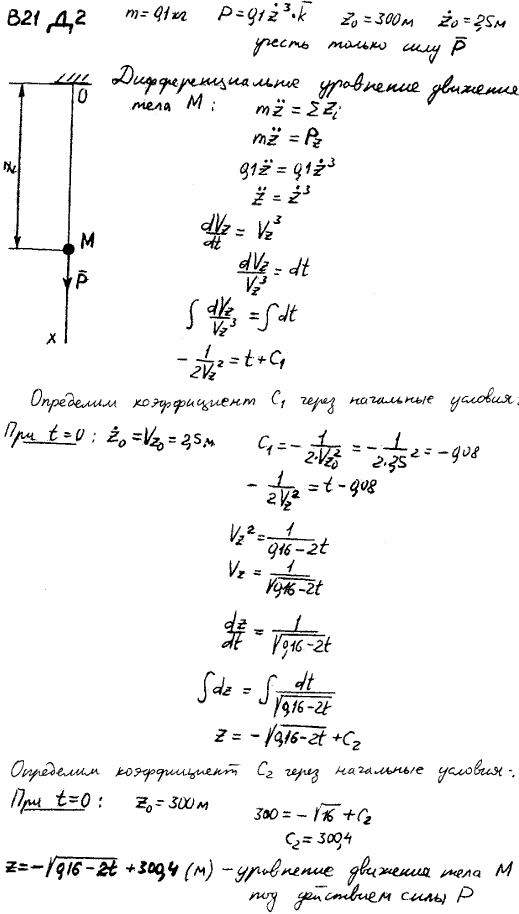 В21 Д.2 m = 0,1 кг P = 0,1 ż³·k̄ z₀ = 300 м ż₀ = 2,5 м
учесть только силу P̄
Дифференциальное уравнение движения
тела М: mz̈ = ΣZᵢ
mz̈ = P_z
0,1z̈ = 0,1ż³
z̈ = ż³
dV_z/dt = V_z³
dV_z/V_z³ = dt
∫ dV_z/V_z³ = ∫ dt
- 1/2V_z² = t + C₁
O
M
P̄
x
Определим коэффициент C₁ через начальные условия:
При t = 0: ż₀ = V_z₀ = 2,5 м C₁ = - 1/2·V_z₀² = - 1/2·2,5² = -0,08
- 1/2V_z² = t - 0,08
V_z² = 1/0,16-2t
V_z = 1/√0,16-2t
dz/dt = 1/√0,16-2t
∫dz = ∫ dt/√0,16-2t
z = -√0,16-2t + C₂
Определим коэффициент C₂ через начальные условия:
При t = 0: z₀ = 300 м 300 = -√16 + C₂
C₂ = 300,4
z = -√0,16-2t + 300,4 (м) - уравнение движения тела М
под действием силы P